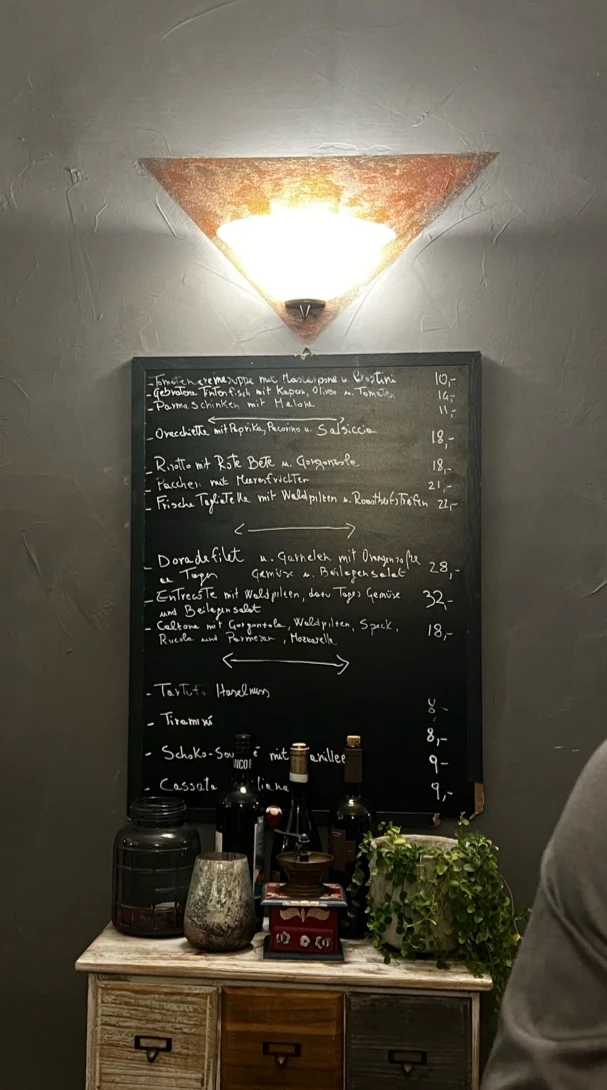 - Tomatencremesuppe mit Mascarpone u. Crostini 10,-
- Gebratene Tintenfisch mit Kapern, Oliven u. Tomaten 14,-
- Parmaschinken mit Melone 11,-
- Orecchiette mit Paprika, Pecorino u. Salsiccia 18,-
- Risotto mit Rote Bete u. Gorgonzola 18,-
- Paccheri mit Meeresfrüchten 21,-
- Frische Tagliatelle mit Waldpilzen u. Roastbeefstreifen 22,-
- Doradefilet u. Garnelen mit Orangensoße 28,-
Gemüse u. Beilagensalat
- Entrecote mit Waldpilzen, dazu Tages Gemüse 32,-
und Beilagensalat
- Calzone mit Gorgonzola, Waldpilzen, Speck, 18,-
Rucola und Parmesan, Mozzarella
- Tartufo Haselnuss 8,-
- Tiramisú 8,-
- Schoko-Sou mit anillee 9,-
- Cassata iliana 9,-